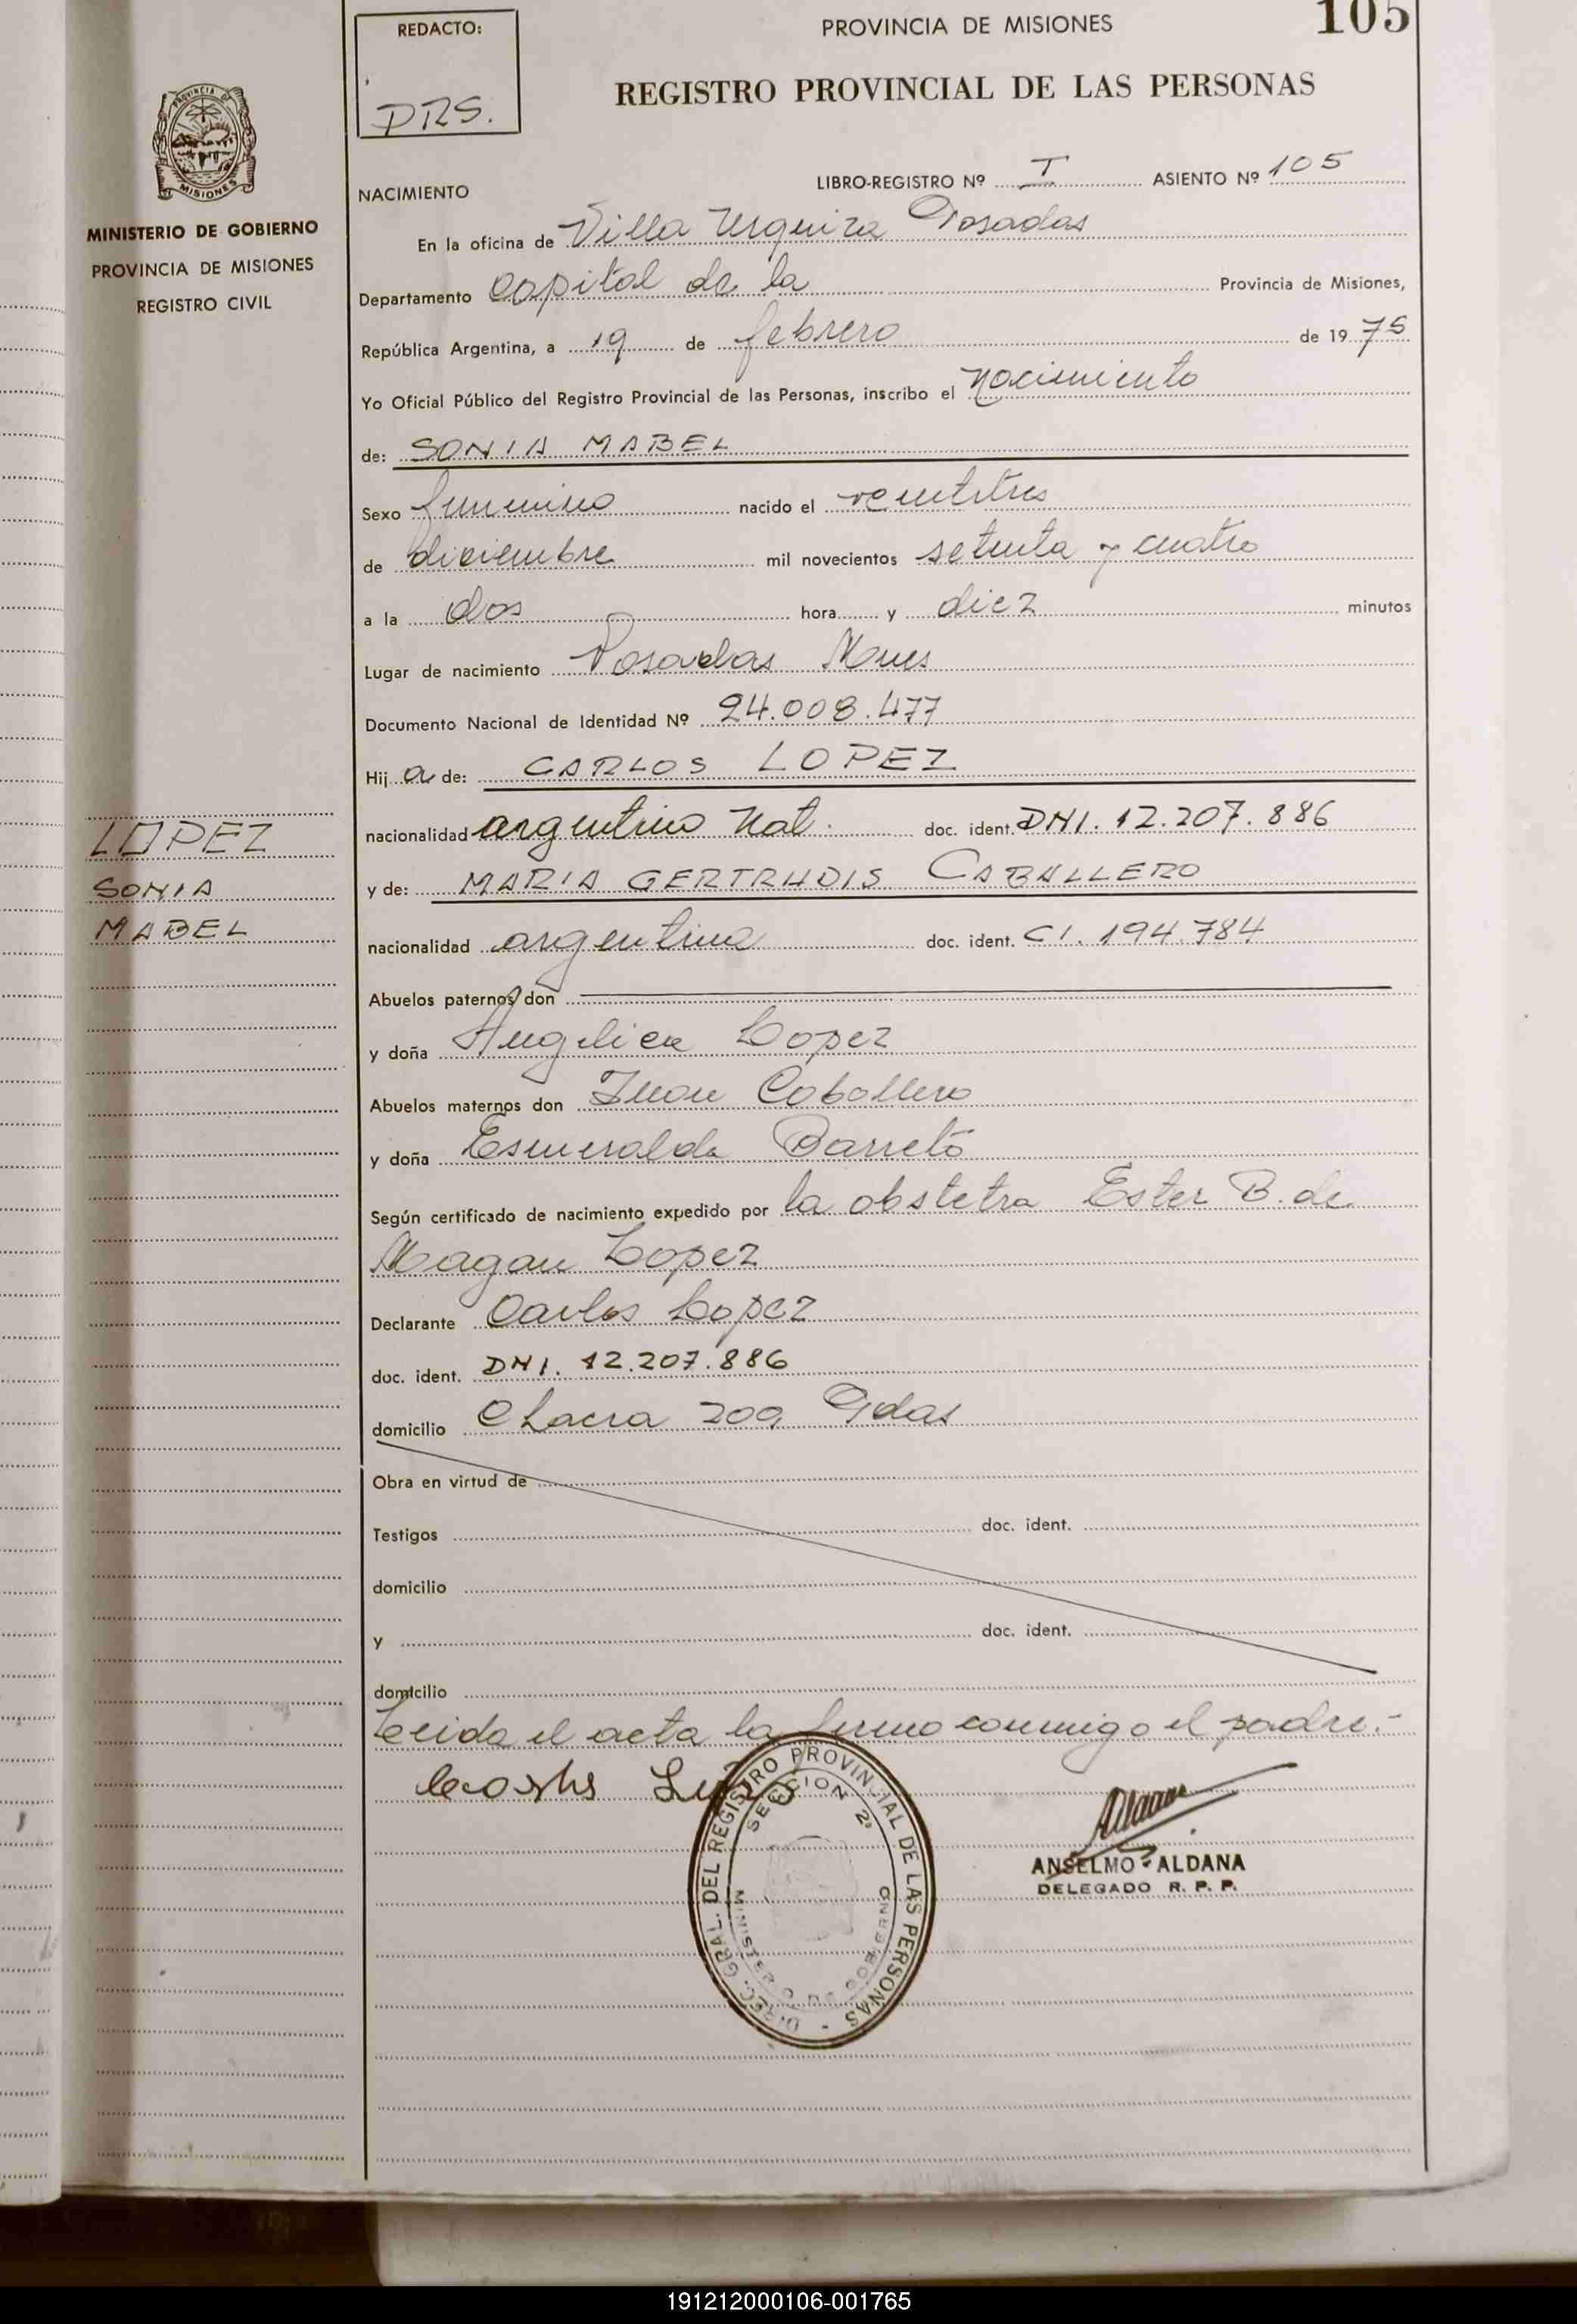 105
REDACTO:
DRS.
PROVINCIA DE MISIONES
REGISTRO PROVINCIAL DE LAS PERSONAS
PROVINCIA DE
MISIONES
MINISTERIO DE GOBIERNO
PROVINCIA DE MISIONES
REGISTRO CIVIL
LIBRO-REGISTRO Nº I ASIENTO Nº 105
NACIMIENTO
En la oficina de Villa Urquiza Posadas
Departamento Capital de la Provincia de Misiones,
República Argentina, a 19 de febrero de 1975
Yo Oficial Público del Registro Provincial de las Personas, inscribo el nacimiento
de: SONIA MABEL
Sexo femenino nacido el veintitres
de diciembre mil novecientos setenta y cuatro
a la dos hora y diez minutos
Lugar de nacimiento Posadas Mnes
Documento Nacional de Identidad Nº 24.008.477
Hij a de: CARLOS LOPEZ
LOPEZ
SONIA
MABEL
nacionalidad argentino Nat. doc. ident. DNI. 12.207.886
y de: MARIA GERTRUDIS CABALLERO
nacionalidad argentina doc. ident. CI. 194.784
Abuelos paternos don
y doña Angelica Lopez
Abuelos maternos don Juan Caballero
y doña Esmeralda Barreto
Según certificado de nacimiento expedido por la obstetra Ester B. de
Magan Lopez
Declarante Carlos Lopez
doc. ident. DNI. 12.207.886
domicilio Chacra 209 Pdas
Obra en virtud de
Testigos doc. ident.
domicilio
y doc. ident.
domicilio
Leida el acta la firmo conmigo el padre.-
DIREC. GRAL. DEL REGISTRO PROVINCIAL DE LAS PERSONAS -
SECCION 2ª
MINISTERIO DE GOBIERNO
ANSELMO ALDANA
DELEGADO R. P. P.
191212000106-001765